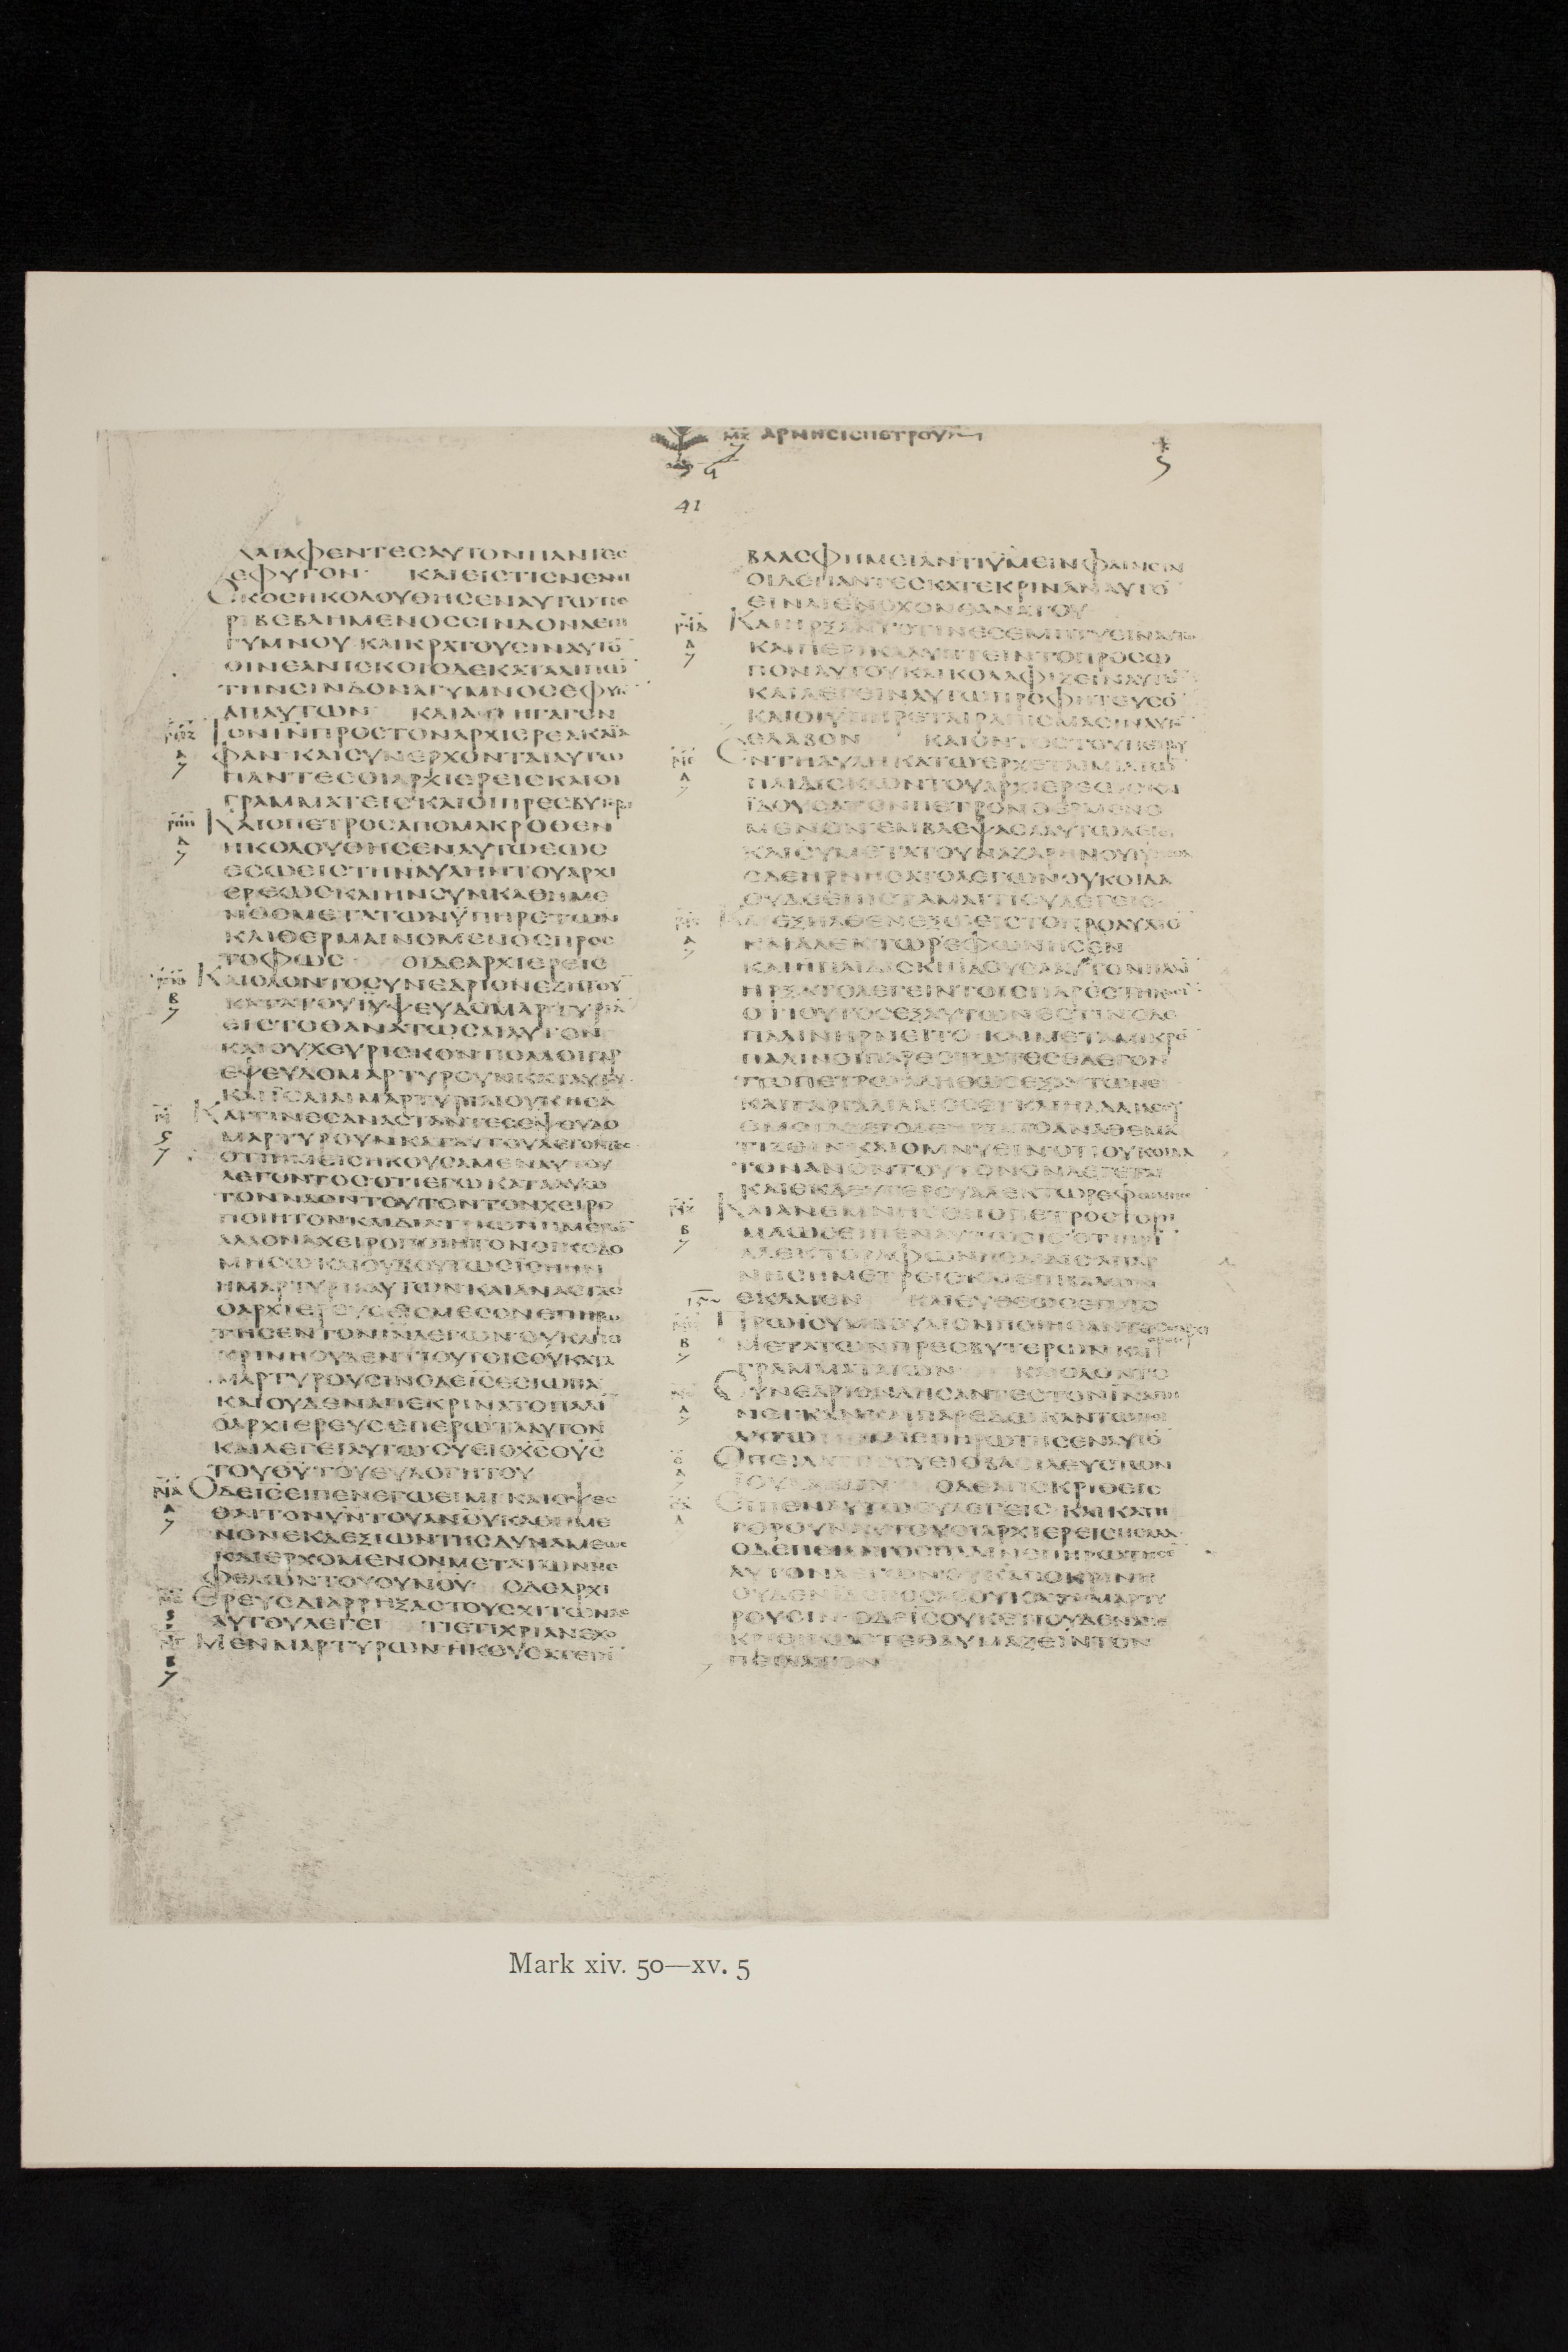 ΜΖ ΑΡΝΗϹΙϹΠΕΤΡΟΥ
41
ΚΑΙΑΦΕΝΤΕϹΑΥΤΟΝΠΑΝΤΕϹ
ΕΦΥΓΟΝ ΚΑΙΕΙϹΤΙϹΝΕΑΝΙ
ϹΚΟϹΗΚΟΛΟΥΘΗϹΕΝΑΥΤΩΠΕ
ΡΙΒΕΒΛΗΜΕΝΟϹϹΙΝΔΟΝΑΕΠΙ
ΓΥΜΝΟΥ ΚΑΙΚΡΑΤΟΥϹΙΝΑΥΤΟ̅
ΟΙΝΕΑΝΙϹΚΟΙΟΔΕΚΑΤΑΛΙΠΩ̅
ΤΗΝϹΙΝΔΟΝΑΓΥΜΝΟϹΕΦΥΓΕ̅
ΑΠΑΥΤΩΝ ΚΑΙΑΠΗΓΑΓΟΝ
ΤΟΝΙΝ̅ΠΡΟϹΤΟΝΑΡΧΙΕΡΕΑΚΑΪΑ
ΦΑΝ ΚΑΙϹΥΝΕΡΧΟΝΤΑΙΑΥΤΩ
ΠΑΝΤΕϹΟΙΑΡΧΙΕΡΕΙϹΚΑΙΟΙ
ΓΡΑΜΜΑΤΕΙϹΚΑΙΟΙΠΡΕϹΒΥΤΕΡΟΙ
ΚΑΙΟΠΕΤΡΟϹΑΠΟΜΑΚΡΟΘΕΝ
ΗΚΟΛΟΥΘΗϹΕΝΑΥΤΩΕΩϹ
ΕϹΩΕΙϹΤΗΝΑΥΛΗΝΤΟΥΑΡΧΙ
ΕΡΕΩϹΚΑΙΗΝϹΥΝΚΑΘΗΜΕ
ΝΟϹΜΕΤΑΤΩΝΫΠΗΡΕΤΩΝ
ΚΑΙΘΕΡΜΑΙΝΟΜΕΝΟϹΠΡΟϹ
ΤΟΦΩϹ ΟΙΔΕΑΡΧΙΕΡΕΙϹ
ΚΑΙΟΛΟΝΤΟϹΥΝΕΔΡΙΟΝΕΖΗΤΟΥ̅
ΚΑΤΑΤΟΥΙΥ̅ΨΕΥΔΟΜΑΡΤΥΡΙΑ̅
ΕΙϹΤΟΘΑΝΑΤΩϹΑΙΑΥΤΟΝ
ΚΑΙΟΥΧΕΥΡΙϹΚΟΝΠΟΛΛΟΙΓΑΡ
ΕΨΕΥΔΟΜΑΡΤΥΡΟΥΝΚΑΤΑΥΤΟΥ
ΚΑΙΪϹΑΙΑΙΜΑΡΤΥΡΙΑΙΟΥΚΗϹΑ̅
ΚΑΙΤΙΝΕϹΑΝΑϹΤΑΝΤΕϹΕΨΕΥΔΟ
ΜΑΡΤΥΡΟΥΝΚΑΤΑΥΤΟΥΛΕΓΟΝΤΕϹ
ΟΤΙΗΜΕΙϹΗΚΟΥϹΑΜΕΝΑΥΤΟΥ
ΛΕΓΟΝΤΟϹΟΤΙΕΓΩΚΑΤΑΛΥϹΩ
ΤΟΝΝΑΟΝΤΟΥΤΟΝΤΟΝΧΕΙΡΟ
ΠΟΙΗΤΟΝΚΑΙΔΙΑΤΡΙΩΝΗΜΕΡΩ̅
ΑΛΛΟΝΑΧΕΙΡΟΠΟΙΗΤΟΝΟΙΚΟΔΟ
ΜΗϹΩ ΚΑΙΟΥΔΟΥΤΩϹΪϹΗΗΝ
ΗΜΑΡΤΥΡΙΑΑΥΤΩΝ ΚΑΙΑΝΑϹΤΑϹ
ΟΑΡΧΙΕΡΕΥϹΕΙϹΜΕϹΟΝΕΠΗΡΩ
ΤΗϹΕΝΤΟΝΙΝ̅ΛΕΓΩΝ ΟΥΚΑΠΟ
ΚΡΙΝΗΟΥΔΕΝ ΤΙΟΥΤΟΙϹΟΥΚΑΤΑ
ΜΑΡΤΥΡΟΥϹΙΝΟΔΕΙϹ̅ΕϹΙΩΠΑ
ΚΑΙΟΥΔΕΝΑΠΕΚΡΙΝΑΤΟΠΑΛΙ̅
ΟΑΡΧΙΕΡΕΥϹΕΠΕΡΩΤΑΑΥΤΟΝ
ΚΑΙΛΕΓΕΙΑΥΤΩ ϹΥΕΙΟΧϹ̅ΟΥϹ̅
ΤΟΥΘΥ̅ΤΟΥΕΥΛΟΓΗΤΟΥ
ΟΔΕΙϹ̅ΕΙΠΕΝΕΓΩΕΙΜΙ ΚΑΙΟΨΕϹ
ΘΑΙΤΟΝΥΝ̅ΤΟΥΑΝΟΥ̅ΚΑΘΗΜΕ
ΝΟΝΕΚΔΕΞΙΩΝΤΗϹΔΥΝΑΜΕΩϹ
ΚΑΙΕΡΧΟΜΕΝΟΝΜΕΤΑΤΩΝΝΕ
ΦΕΛΩΝΤΟΥΟΥΝΟΥ̅ ΟΔΕΑΡΧΙ
ΕΡΕΥϹΔΙΑΡΡΗΞΑϹΤΟΥϹΧΙΤΩΝΑϹ
ΑΥΤΟΥΛΕΓΕΙ ΤΙΕΤΙΧΡΙΑΝΕΧΟ
ΜΕΝΜΑΡΤΥΡΩΝ ΗΚΟΥϹΑΤΕ
ΒΛΑϹΦΗΜΕΙΑΝΤΙΫΜΕΙΝΦΑΙΝΕΤΑΙ
ΟΙΔΕΠΑΝΤΕϹΚΑΤΕΚΡΙΝΑΝΑΥΤΟ̅
ΕΙΝΑΙΕΝΟΧΟΝΘΑΝΑΤΟΥ
ΚΑΙΗΡΞΑΝΤΟΤΙΝΕϹΕΜΠΤΥΕΙΝΑΥΤΩ
ΚΑΙΠΕΡΙΚΑΛΥΠΤΕΙΝΤΟΠΡΟϹΩ
ΠΟΝΑΥΤΟΥΚΑΙΚΟΛΑΦΙΖΕΙΝΑΥΤΟ̅
ΚΑΙΛΕΓΕΙΝΑΥΤΩΠΡΟΦΗΤΕΥϹΟ̅
ΚΑΙΟΙΫΠΗΡΕΤΑΙΡΑΠΙϹΜΑϹΙΝΑΥΤΟ̅
ΕΛΑΒΟΝ ΚΑΙΟΝΤΟϹΤΟΥΠΕΤΡΟΥ
ΕΝΤΗΑΥΛΗΚΑΤΩΕΡΧΕΤΑΙΜΙΑΤΩ̅
ΠΑΙΔΙϹΚΩΝΤΟΥΑΡΧΙΕΡΕΩϹΚΑΙ
ΪΔΟΥϹΑΤΟΝΠΕΤΡΟΝΘΕΡΜΕΝΟ
ΜΕΝΟΝΕΜΒΛΕΨΑϹΑΑΥΤΩΛΕΓΕΙ
ΚΑΙϹΥΜΕΤΑΤΟΥΝΑΖΑΡΗΝΟΥΙΥ̅
ΟΔΕΗΡΝΗϹΑΤΟΛΕΓΩΝΟΥΚΟΙΔΑ
ΟΥΔΕΕΠΙϹΤΑΜΑΙΤΙϹΥΛΕΓΕΙϹ
ΚΑΙΕΞΗΛΘΕΝΕΞΩΕΙϹΤΟΠΡΟΑΥΛΙΟ̅
ΚΑΙΑΛΕΚΤΩΡΕΦΩΝΗϹΕΝ
ΚΑΙΗΠΑΙΔΙϹΚΗΪΔΟΥϹΑΑΥΤΟΝΠΑΛΙ̅
ΗΡΞΑΤΟΛΕΓΕΙΝΤΟΙϹΠΑΡΕϹΤΗΚΟϹΙ̅
ΟΤΙΟΥΤΟϹΕΞΑΥΤΩΝΕϹΤΙΝΟΔΕ
ΠΑΛΙΝΗΡΝΕΙΤΟ ΚΑΙΜΕΤΑΜΙΚΡΟ̅
ΠΑΛΙΝΟΙΠΑΡΕϹΤΩΤΕϹΕΛΕΓΟΝ
ΤΩΠΕΤΡΩ ΑΛΗΘΩϹΕΞΑΥΤΩΝΕΙ
ΚΑΙΓΑΡΓΑΛΙΛΑΙΟϹΕΙΚΑΙΗΛΑΛΙΑϹΟΥ
ΟΜΟΙΑΖΕΙΟΔΕΗΡΞΑΤΟΑΝΑΘΕΜΑ
ΤΙΖΕΙΝΚΑΙΟΜΝΥΕΙΝΟΤΙΟΥΚΟΙΔΑ
ΤΟΝΑΝΟΝ̅ΤΟΥΤΟΝΟΝΛΕΓΕΤΑΙ
ΚΑΙΕΚΔΕΥΤΕΡΟΥΑΛΕΚΤΩΡΕΦΩΝΗϹΕ
ΚΑΙΑΝΕΜΝΗϹΘΗΟΠΕΤΡΟϹΤΟΡΗ
ΜΑΩϹΕΙΠΕΝΑΥΤΩΟΙϹ̅ΟΤΙΠΡΙ̅
ΑΛΕΚΤΟΡΑΦΩΝΗϹΑΙΔΙϹΑΠΑΡ
ΝΗϹΗΜΕΤΡΕΙϹΚΑΙΕΠΙΒΑΛΩΝ
ΕΚΛΑΙΕΝ ΚΑΙΕΥΘΕΩϹΕΠΙΤΟ
ΠΡΩΙϹΥΜΒΟΥΛΙΟΝΠΟΙΗϹΑΝΤΕϹ
ΜΕΤΑΤΩΝΠΡΕϹΒΥΤΕΡΩΝΚΑΙ
ΓΡΑΜΜΑΤΑΙΩΝ ΚΑΙΟΛΟΝΤΟ
ϹΥΝΕΔΡΙΟΝΔΗϹΑΝΤΕϹΤΟΝΙΝ̅ΑΠΗ
ΝΕΓΚΑΝΚΑΙΠΑΡΕΔΩΚΑΝΤΩ
ΑΥΤΟΝ ΚΑΙΕΠΗΡΩΤΗϹΕΝΑΥΤΟ̅
ΟΠΕΙΛΑΤΟϹϹΥΕΙΟΒΑϹΙΛΕΥϹΤΩΝ
ΪΟΥΔΑΙΩΝ ΟΔΕΑΠΟΚΡΙΘΕΙϹ
ΕΙΠΕΝΑΥΤΩϹΥΛΕΓΕΙϹ ΚΑΙΚΑΤΗ
ΓΟΡΟΥΝΑΥΤΟΥΟΙΑΡΧΙΕΡΕΙϹΠΟΛΛΑ
ΟΔΕΠΕΙΛΑΤΟϹΠΑΛΙΝΕΠΗΡΩΤΗϹΕ̅
ΑΥΤΟΝΛΕΓΩΝΟΥΚΑΠΟΚΡΙΝΗ
ΟΥΔΕΝΪΔΕΠΟϹΑϹΟΥΚΑΤΑΜΑΡΤΥ
ΡΟΥϹΙΝ ΟΔΕΙϹ̅ΟΥΚΕΤΙΟΥΔΕΝΑΠΕ
ΚΡΙΘΗΩϹΤΕΘΑΥΜΑΖΕΙΝΤΟΝ
ΠΕΙΛΑΤΟΝ
Mark xiv. 50—xv. 5